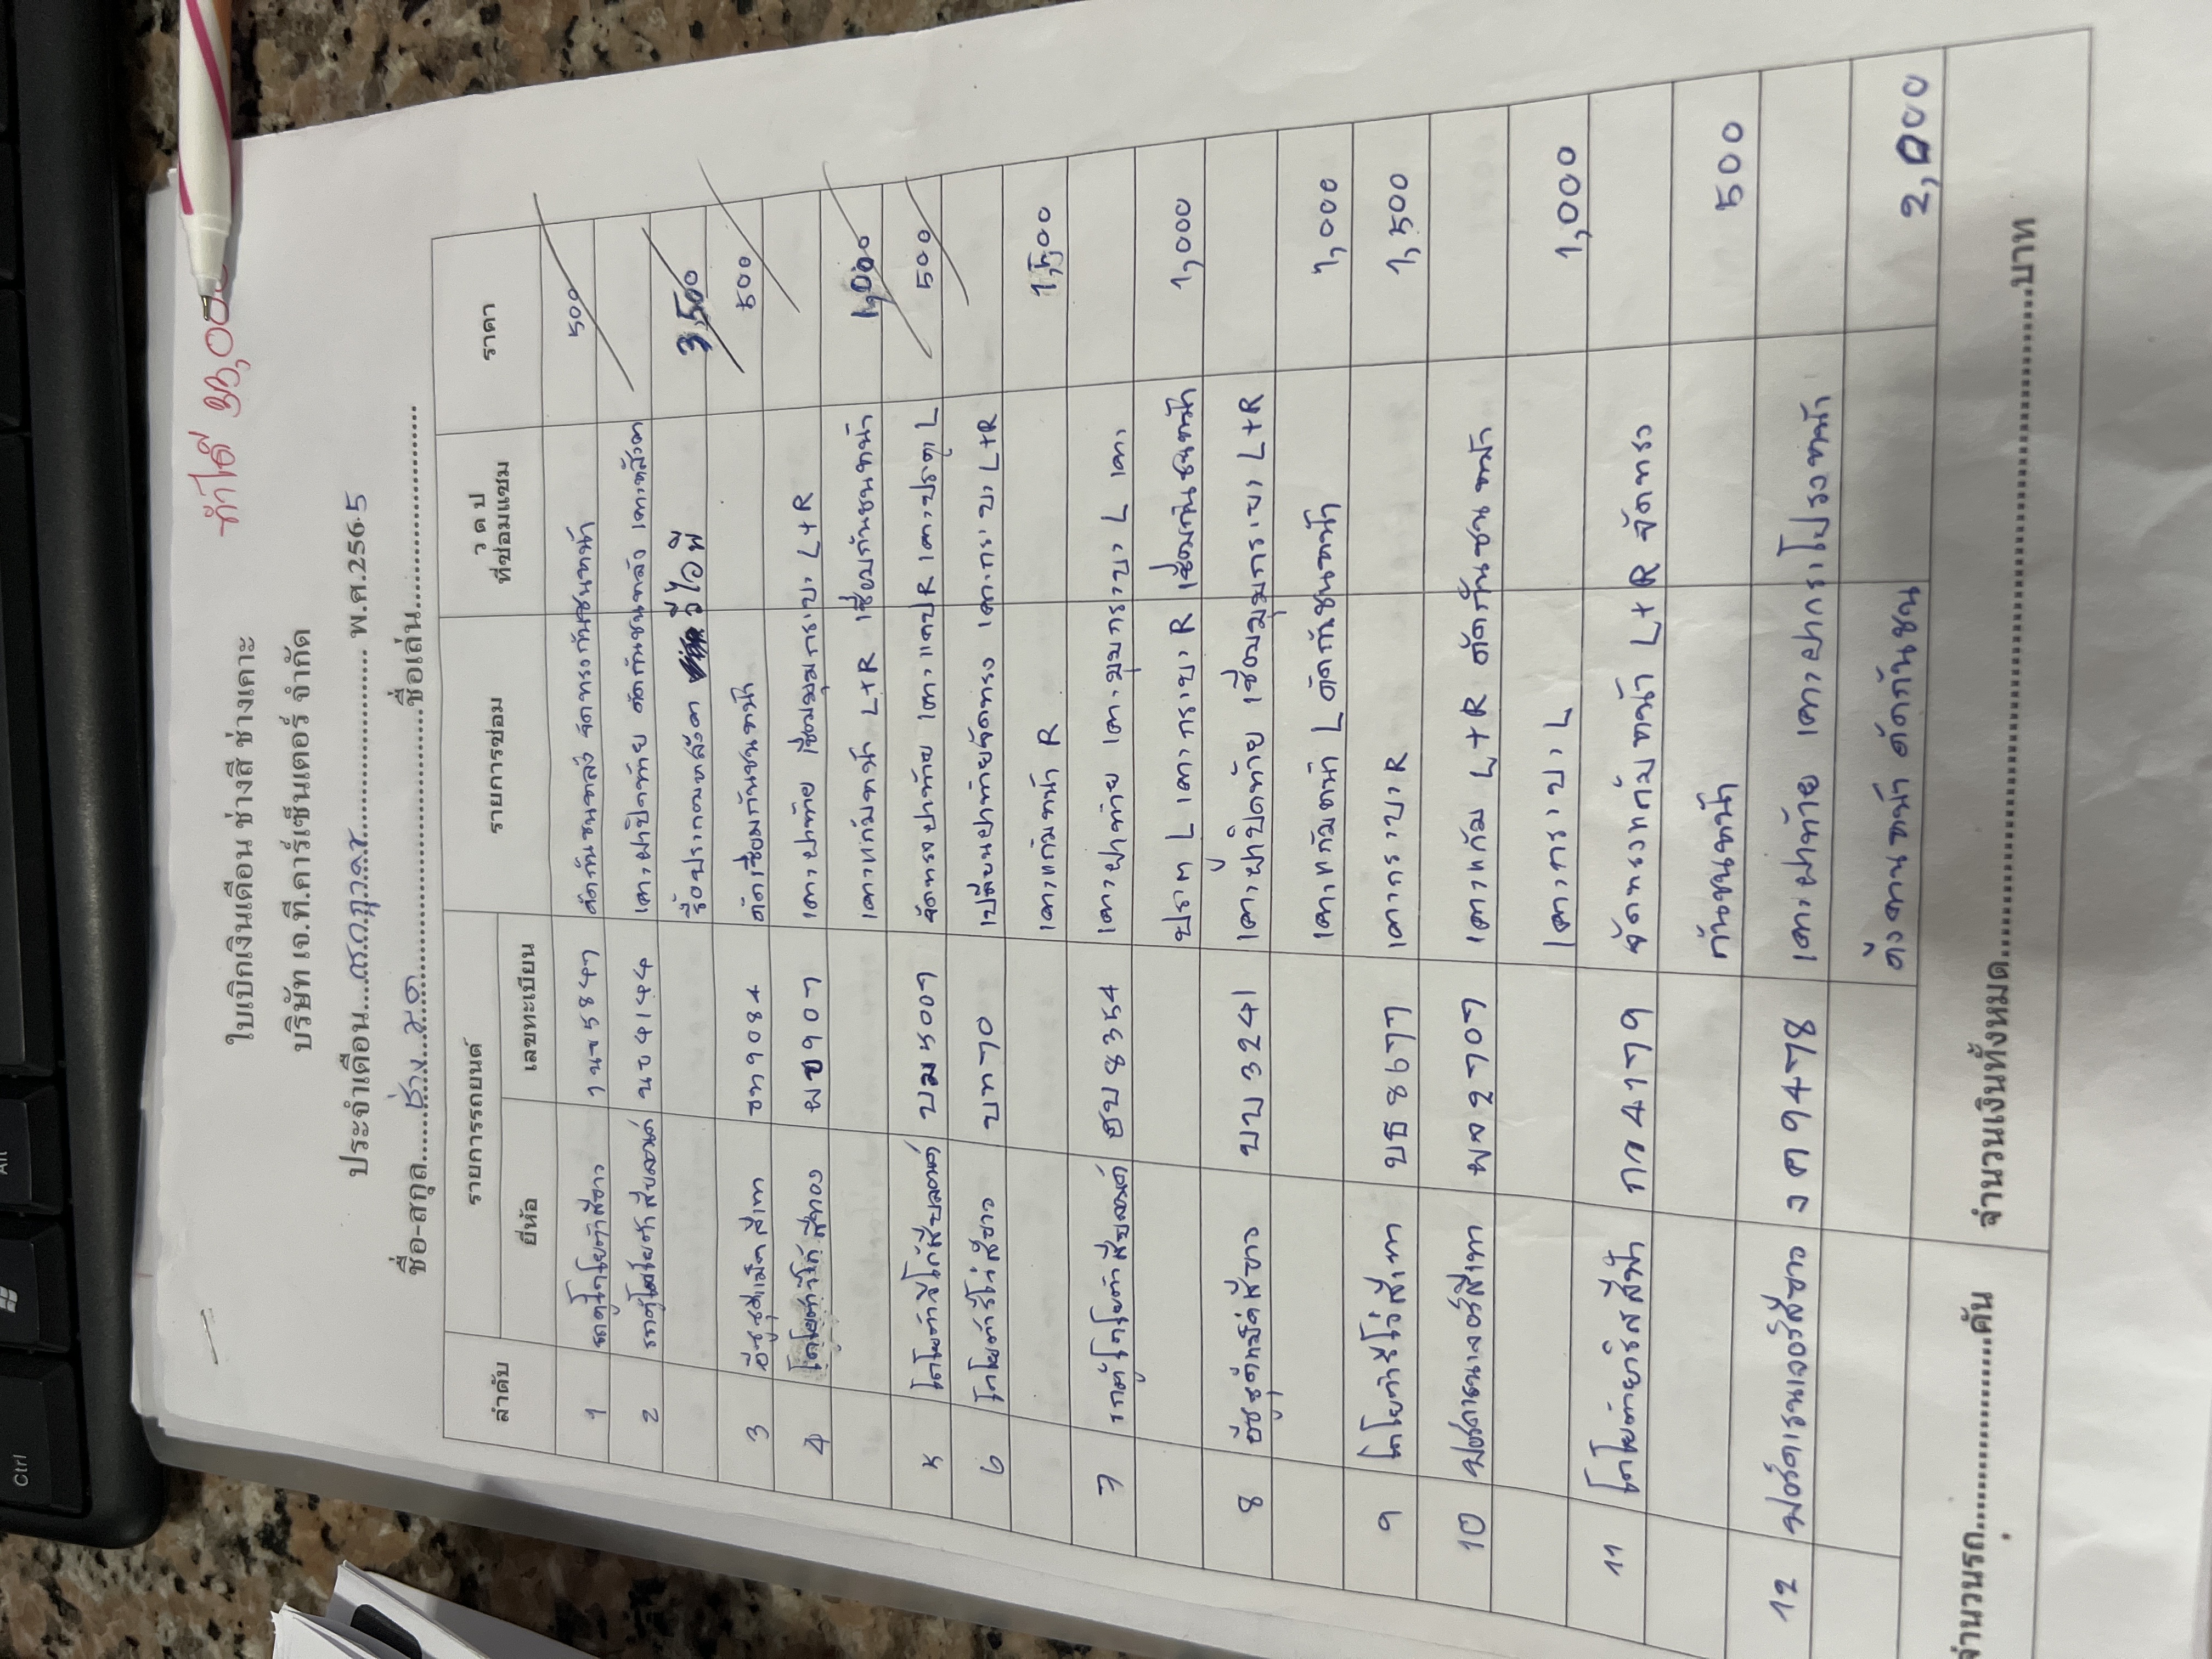 ทำได้ 33,00
ใบเบิกเงินเดือน ช่างสี ช่างเคาะ
บริษัท เจ.ที.คาร์เซ็นเตอร์ จำกัด
ประจำเดือน....กรกฎาคม.................... พ.ศ.256.5
ชื่อ-สกุล........ช่าง..มด...............................ชื่อเล่น.........................
ลำดับ รายการรถยนต์ รายการซ่อม ว ด ป ที่ซ่อมแซม ราคา
ยี่ห้อ เลขทะเบียน
1 ตัดกันชนหลัง จัดทรงกันชนหน้า 500
2 นข 4144 เคาะฝาปิดท้าย ตัดกันชนหลัง เคาะหลังคา
วีไอพี 3,500
3 อีซูซุ สีเทา 9084 ตัดเชื่อมกันชนหน้า 500
4 สีทอง 907 เคาะฝาท้าย เชื่อมมุมกระบะ L+R
เคาะแก้มหน้า L+R เชื่อมกันชนหน้า 1,000
5 5007 จัดทรงฝาท้าย เคาะแคป R เคาะประตู L 500
6 โตโยต้ารีโว่สีขาว บท 70 เปลี่ยนฝาท้ายจัดทรง เคาะกระบะ L+R
เคาะแก้มหน้า R 1,500
7 ฮบ 8354 เคาะฝาท้าย เคาะมุมกระบะ L เคาะ
L เคาะกระบะ R เชื่อมกันชนหน้า 1,000
8 สีขาว บบ 3241 เคาะฝาปิดท้าย เชื่อมมุมกระบะ L+R
เคาะแก้มหน้า L ตัดกันชนหน้า 1,000
9 โตโยต้ารีโว่สีเทา บธ 8677 เคาะกระบะ R 1,500
10 สีเทา 2707 เคาะแก้ม L+R ตัดกันชนหน้า
เคาะกระบะ L 1,000
11 โตโยต้ายาริสสีฟ้า 4179 จัดทรงแก้มหน้า L+R จัดทรง
กันชนหน้า 500
12 สีขาว 9478 เคาะฝาท้าย เคาะฝากระโปรงหน้า
ดึงคานหน้า ตัดกันชน 2,000
จำนวนรถ.......................คัน จำนวนเงินทั้งหมด...............................................บาท
Alt
Ctrl